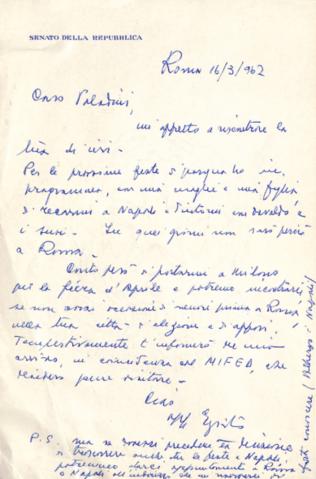 SENATO DELLA REPUBBLICA
Roma 16/3/962
Caro Paladini,
mi affretto a riscontrare la
tua di ieri.
Per le prossime feste di pasqua ho in
programma, con mia moglie e mia figlia
di recarmi a Napoli e dintorni con
i suoi. In quei giorni non sarò perciò
a Roma.
Conto però di portarmi a Milano
per la fiera d'Aprile e potremo incontrarci,
se non avrai occasione di venire prima a Roma,
nella tua città di elezione e di
Tempestivamente t'informerò del mio
arrivo, in coincidenza col MIFED, che
desidero pure visitare.
Ciao
P.S. ma se dovessi
trascorrere anche tu le feste a Napoli,
potremmo darci appuntamento a Roma
o Napoli
fatti conoscere (